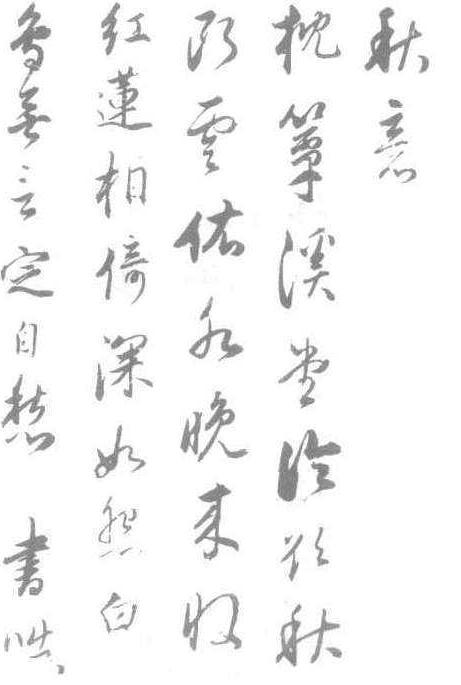 秋意
枕簟溪堂冷欲秋
断雲依水晚来收
红蓮相倚深如怨白
鸟無言定自愁 書咄